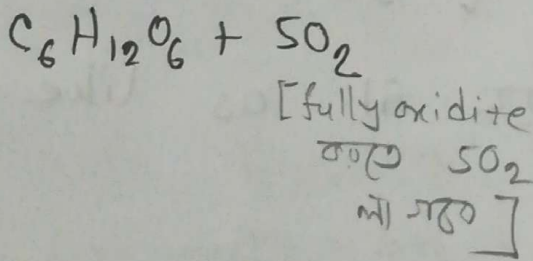 C₆H₁₂O₆ + SO₂
[fully oxidite
করতে SO₂
লাগবে]